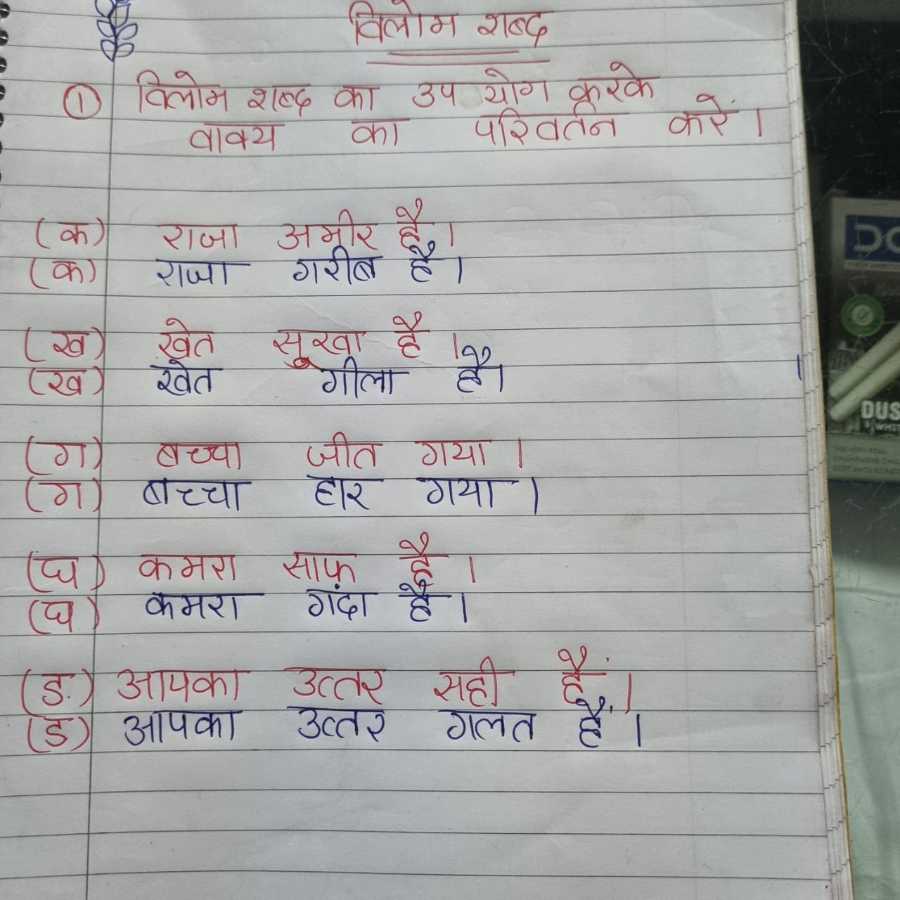 विलोम शब्द
① विलोम शब्द का उप योग करके
वाक्य का परिवर्तन करें।
(क) राजा अमीर है।
(क) राजा गरीब है।
(ख) खेत सूखा है।
(ख) खेत गीला है।
(ग) बच्चा जीत गया।
(ग) बच्चा हार गया।
(घ) कमरा साफ है।
(घ) कमरा गंदा है।
(ङ) आपका उत्तर सही है।
(ङ) आपका उत्तर गलत है।
DUS